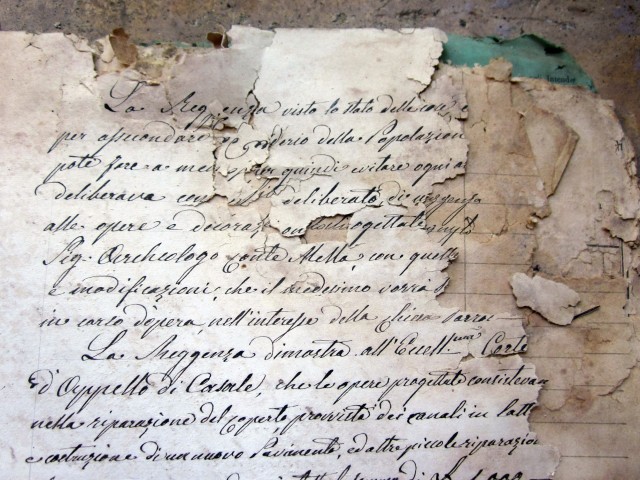 La Reggenza visto lo stato delle cose e
per assecondare desiderio della Popolazion
pote fare a men per quindi evitare ogni a
deliberava con deliberato di
alle opere e decoraz progettate
Sig. Archeologo Conte Mella, con quelle
e modificazioni, che il medesimo vorrà
in corso d'opera, nell'interesse della Chiesa Parroc
La Reggenza dimostra all'Eccell.ma Corte
d'Appello di Casale, che le opere progettate consistevan
nella riparazione del coperto, provvista dei canali in latta
costruzione di un nuovo Pavimento, ed altre piccole riparazion